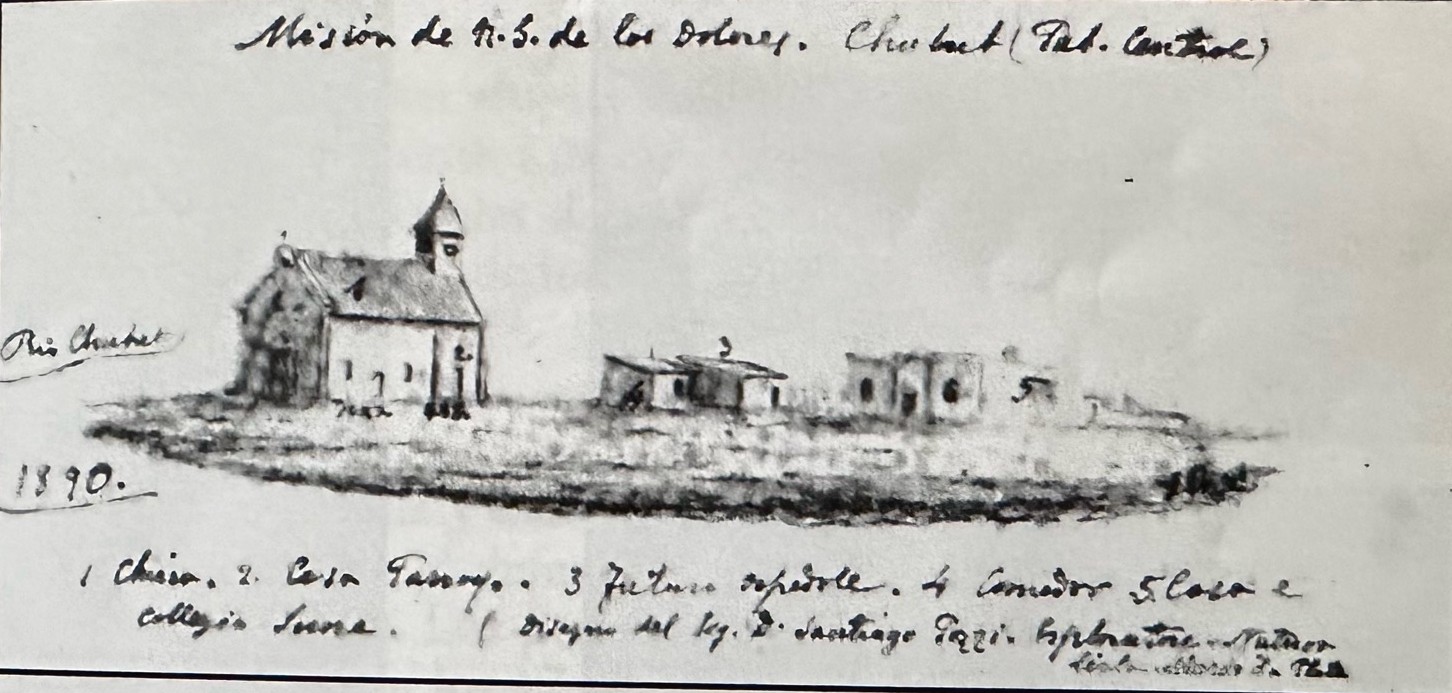 Misión de N. S. de los Dolores. Chubut (Pat. Central)
1
2.
3
4
6
5
Rio Chubut
1890.
1 Chiesa. 2. Casa Parroq. . 3 Futuro ospedale. 4 Comedor 5. Casa e
collegio Suore. ( Disegno del Sig. D. Santiago Pozzi. Esploratore